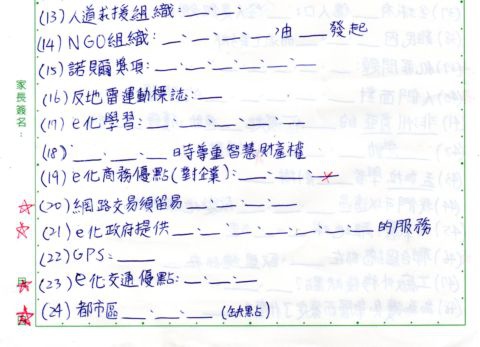 (13)人道救援組織:__、__、__
(14)NGO組織:__、__、__、__,由__發起
(15)諾貝爾獎項:__、__、__、__、__
(16)反地雷運動標誌:__
(17)e化學習:__、__、__、__、__
(18)__、__、__時尊重智慧財產權
(19)e化商務優點(對企業):__、__、__
(20)網路交易須留易__、__、__
(21)e化政府提供__、__、__、__、__的服務
(22)GPS:__
(23)e化交通優點:__、__、__
(24)都市區__、__、__(缺點)
家長簽名: